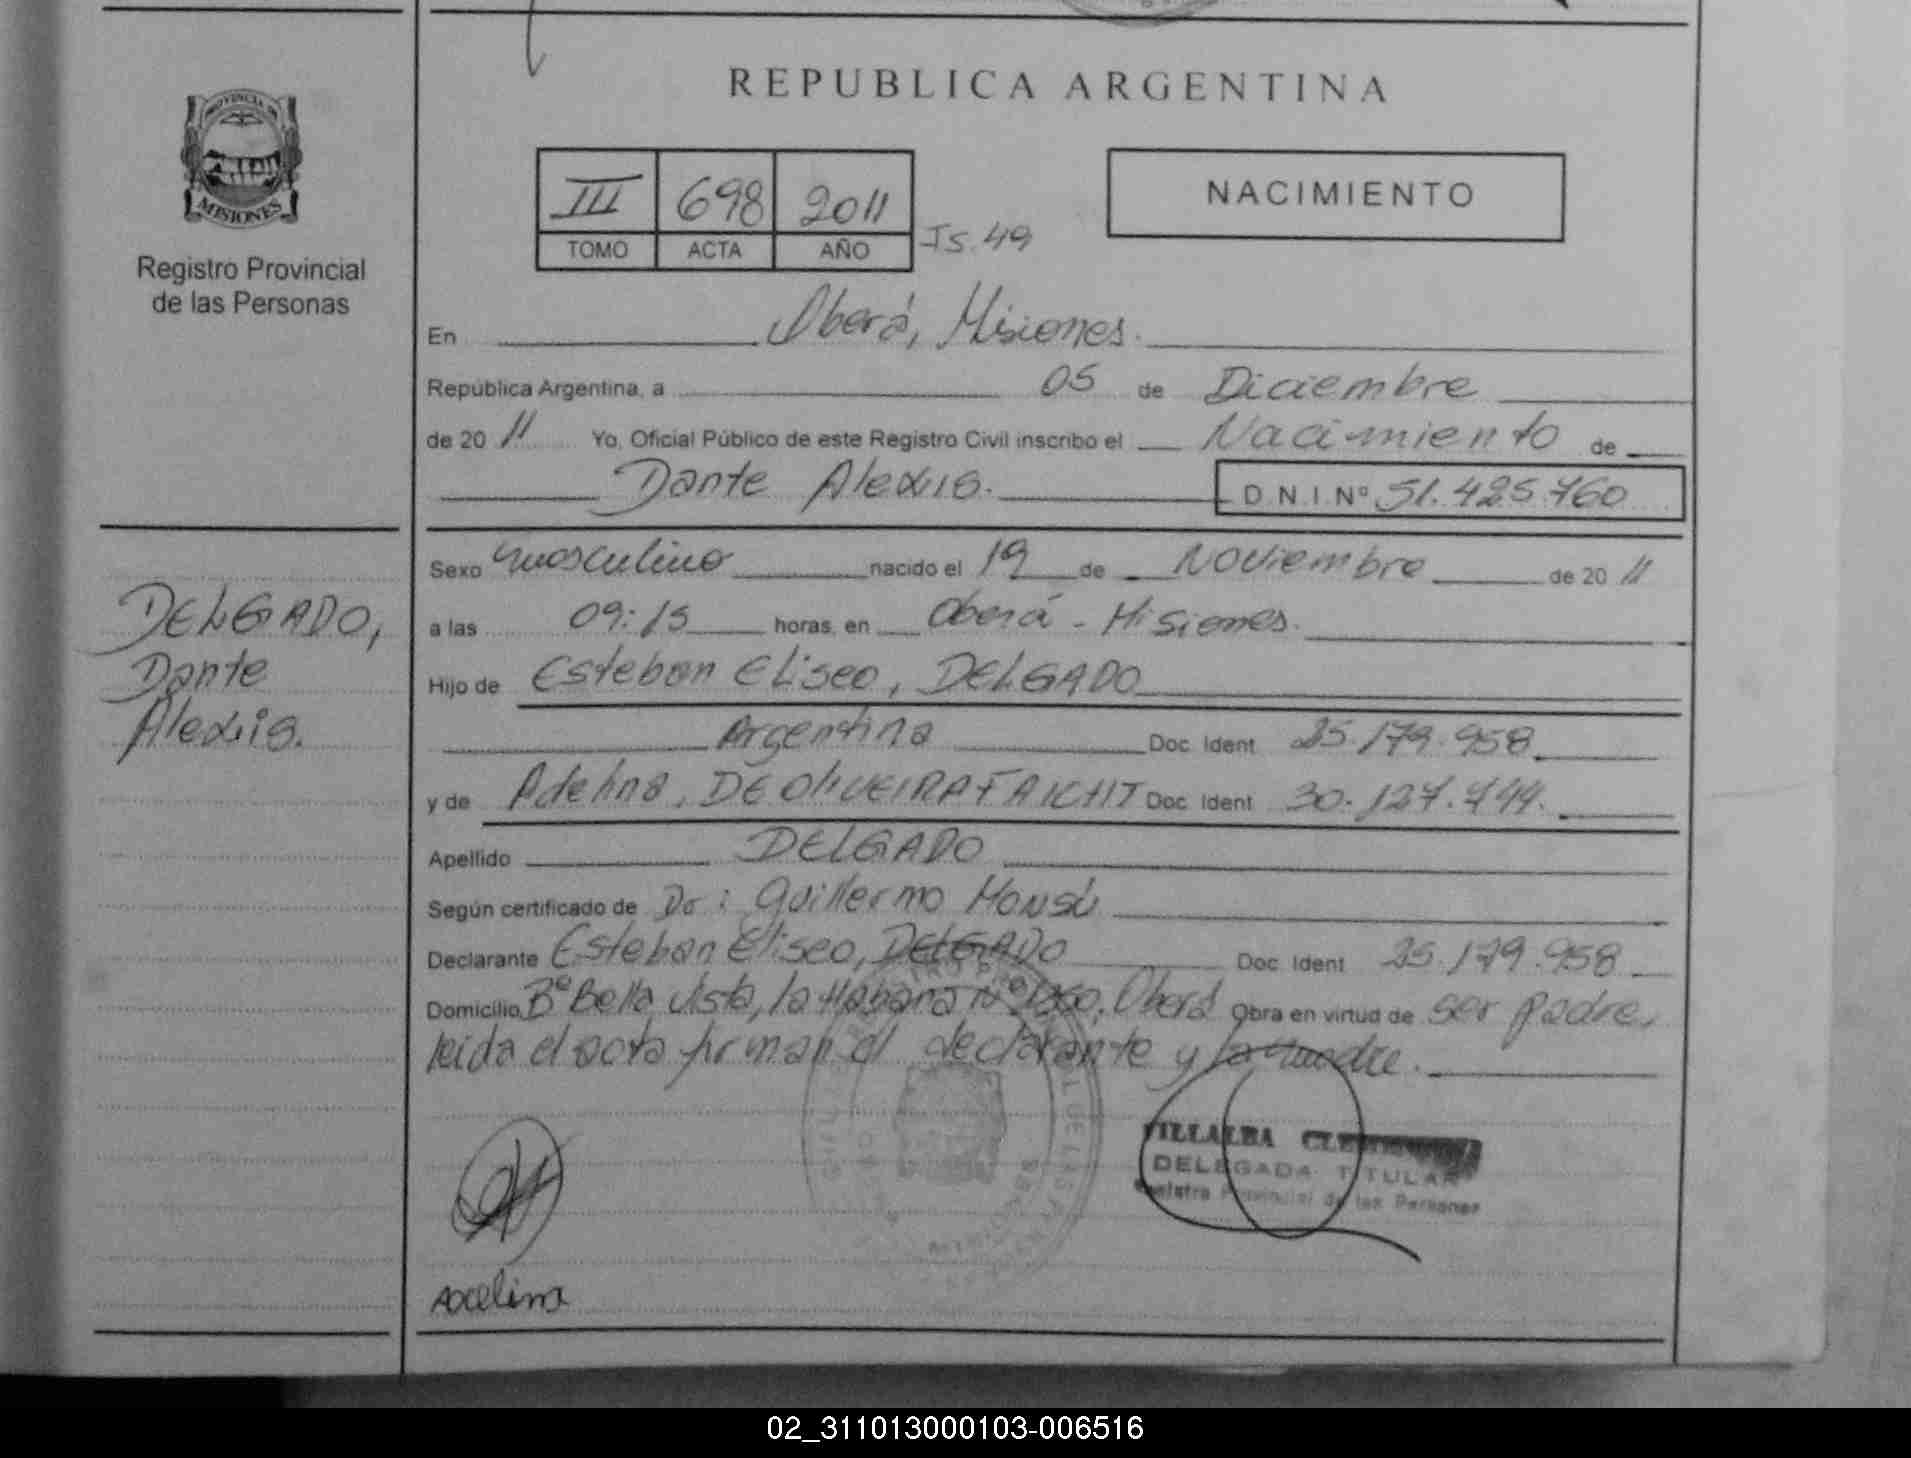 REPUBLICA ARGENTINA
PROVINCIA DE
MISIONES
Registro Provincial
de las Personas
III 698 2011
TOMO ACTA AÑO
NACIMIENTO
En Oberá, Misiones.
República Argentina, a 05 de Diciembre
de 20 11 Yo, Oficial Público de este Registro Civil inscribo el Nacimiento de
Dante Alexis. D.N.I.Nº 51.425.760
DELGADO,
Dante
Alexis.
Sexo masculino nacido el 19 de Noviembre de 20 11
a las 09:15 horas, en Oberá - Misiones.
Hijo de Esteban Eliseo, DELGADO
Argentina Doc. Ident 25.179.958
y de DE OliVEIRA FAICHT Doc. Ident 30.127.744.
Apellido DELGADO
Según certificado de Dr: Guillermo Monsú
Declarante Esteban Eliseo, DELGADO Doc. Ident 25.179.958
Domicilio Bº Bella Vista, la Habana Nº Oberá Obra en virtud de ser padre,
leida el acta firman el declarante y la madre.
VILLALBA
DELEGADA TITULAR
Registro Provincial de las Personas
02_311013000103-006516